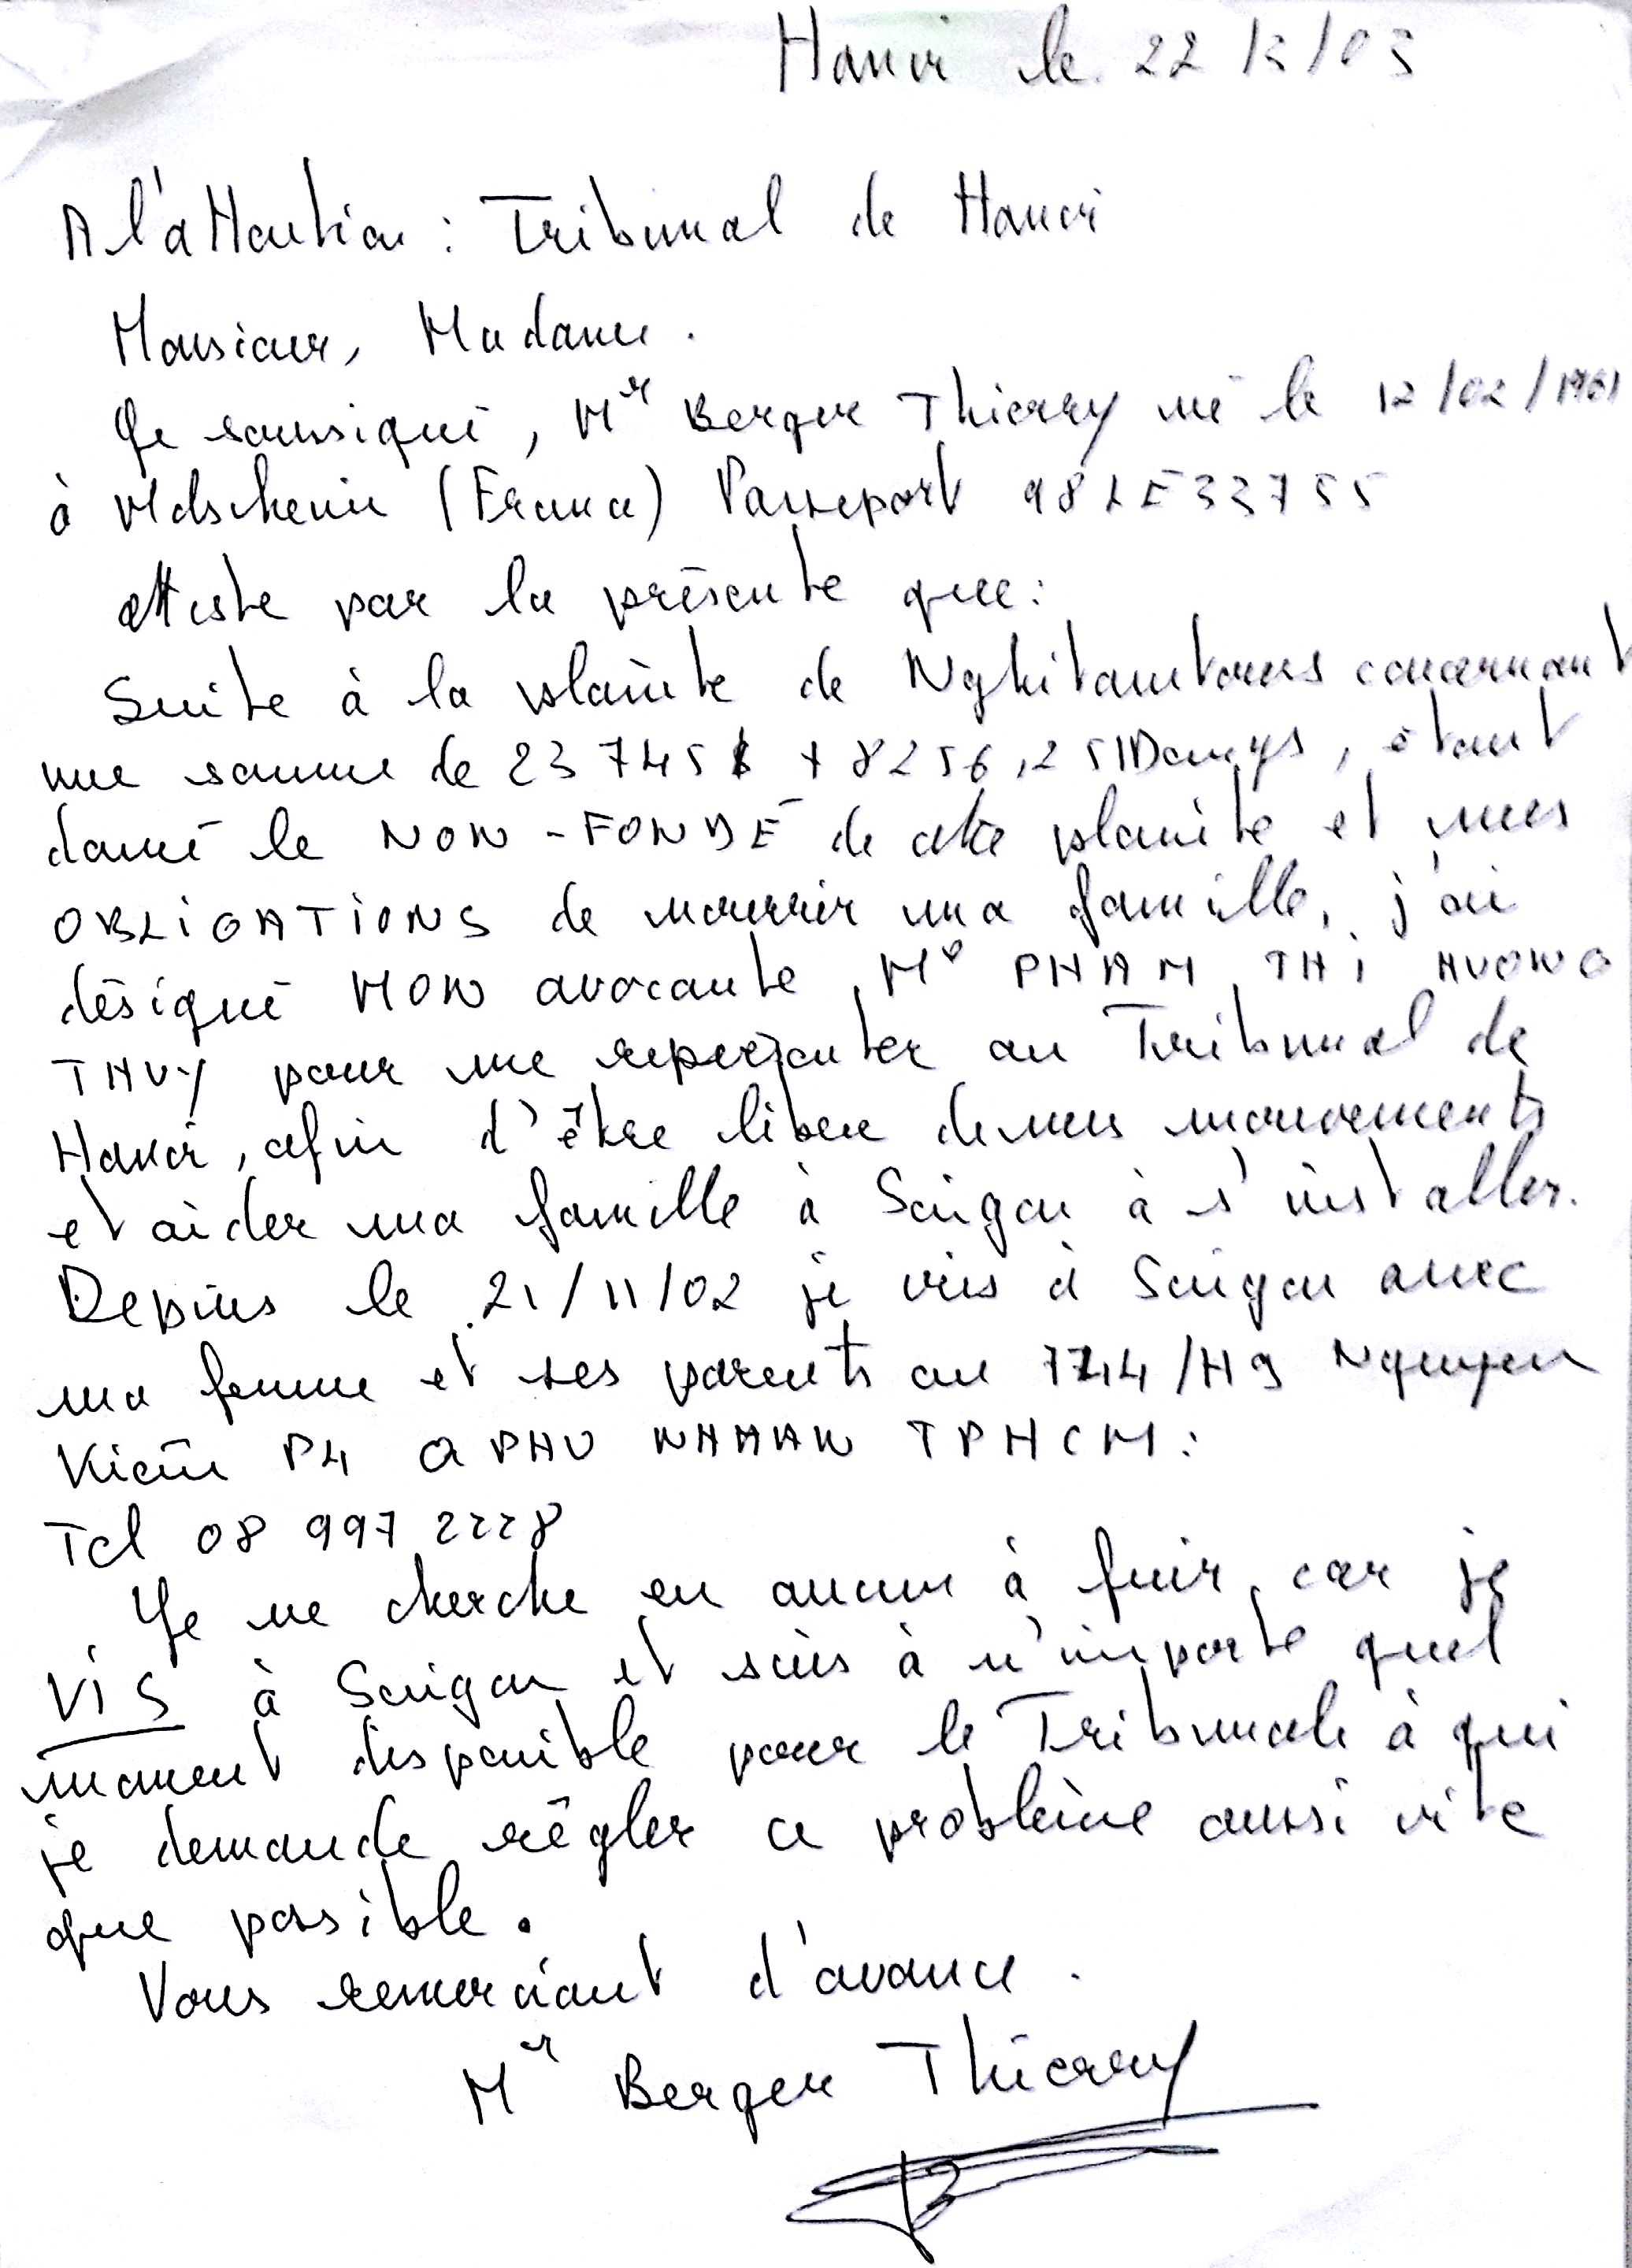 Hanoi le 22 /3/03
A l'attention : Tribunal de Hanoi
Monsieur, Madame.
Je soussigné, Mr Berger Thierry né le 12/02/1961
à Molsheim (France) Passeport 98LE33755
atteste par la présente que:
Suite à la plainte de Nghitamtours concernant
une somme de 23 745 $ + 8256,251Dongs, étant
donné le NON-FONDÉ de cette plainte et mes
OBLIGATIONS de nourrir ma famille, j'ai
désigné MON avocante, Me PHAM THI HUONG
THUY pour me representer au Tribunal de
Hanoi, afin d'être libere de mes mouvements
et aider ma famille à Saigon à s'installer.
Depuis le 21/11/02 je vis à Saigon avec
ma femme et ses parents au /H9 Nguyen
Kiem P4 Q PHU NHAAN TPHCM:
Tel 08 997 2228
Je ne cherche en aucun à fuir, car je
VIS à Saigon et suis à n'importe quel
moment disponible pour le Tribunale à qui
je demande régler ce problème aussi vite
que possible.
Vous remerciant d'avance.
Mr Berger Thierry